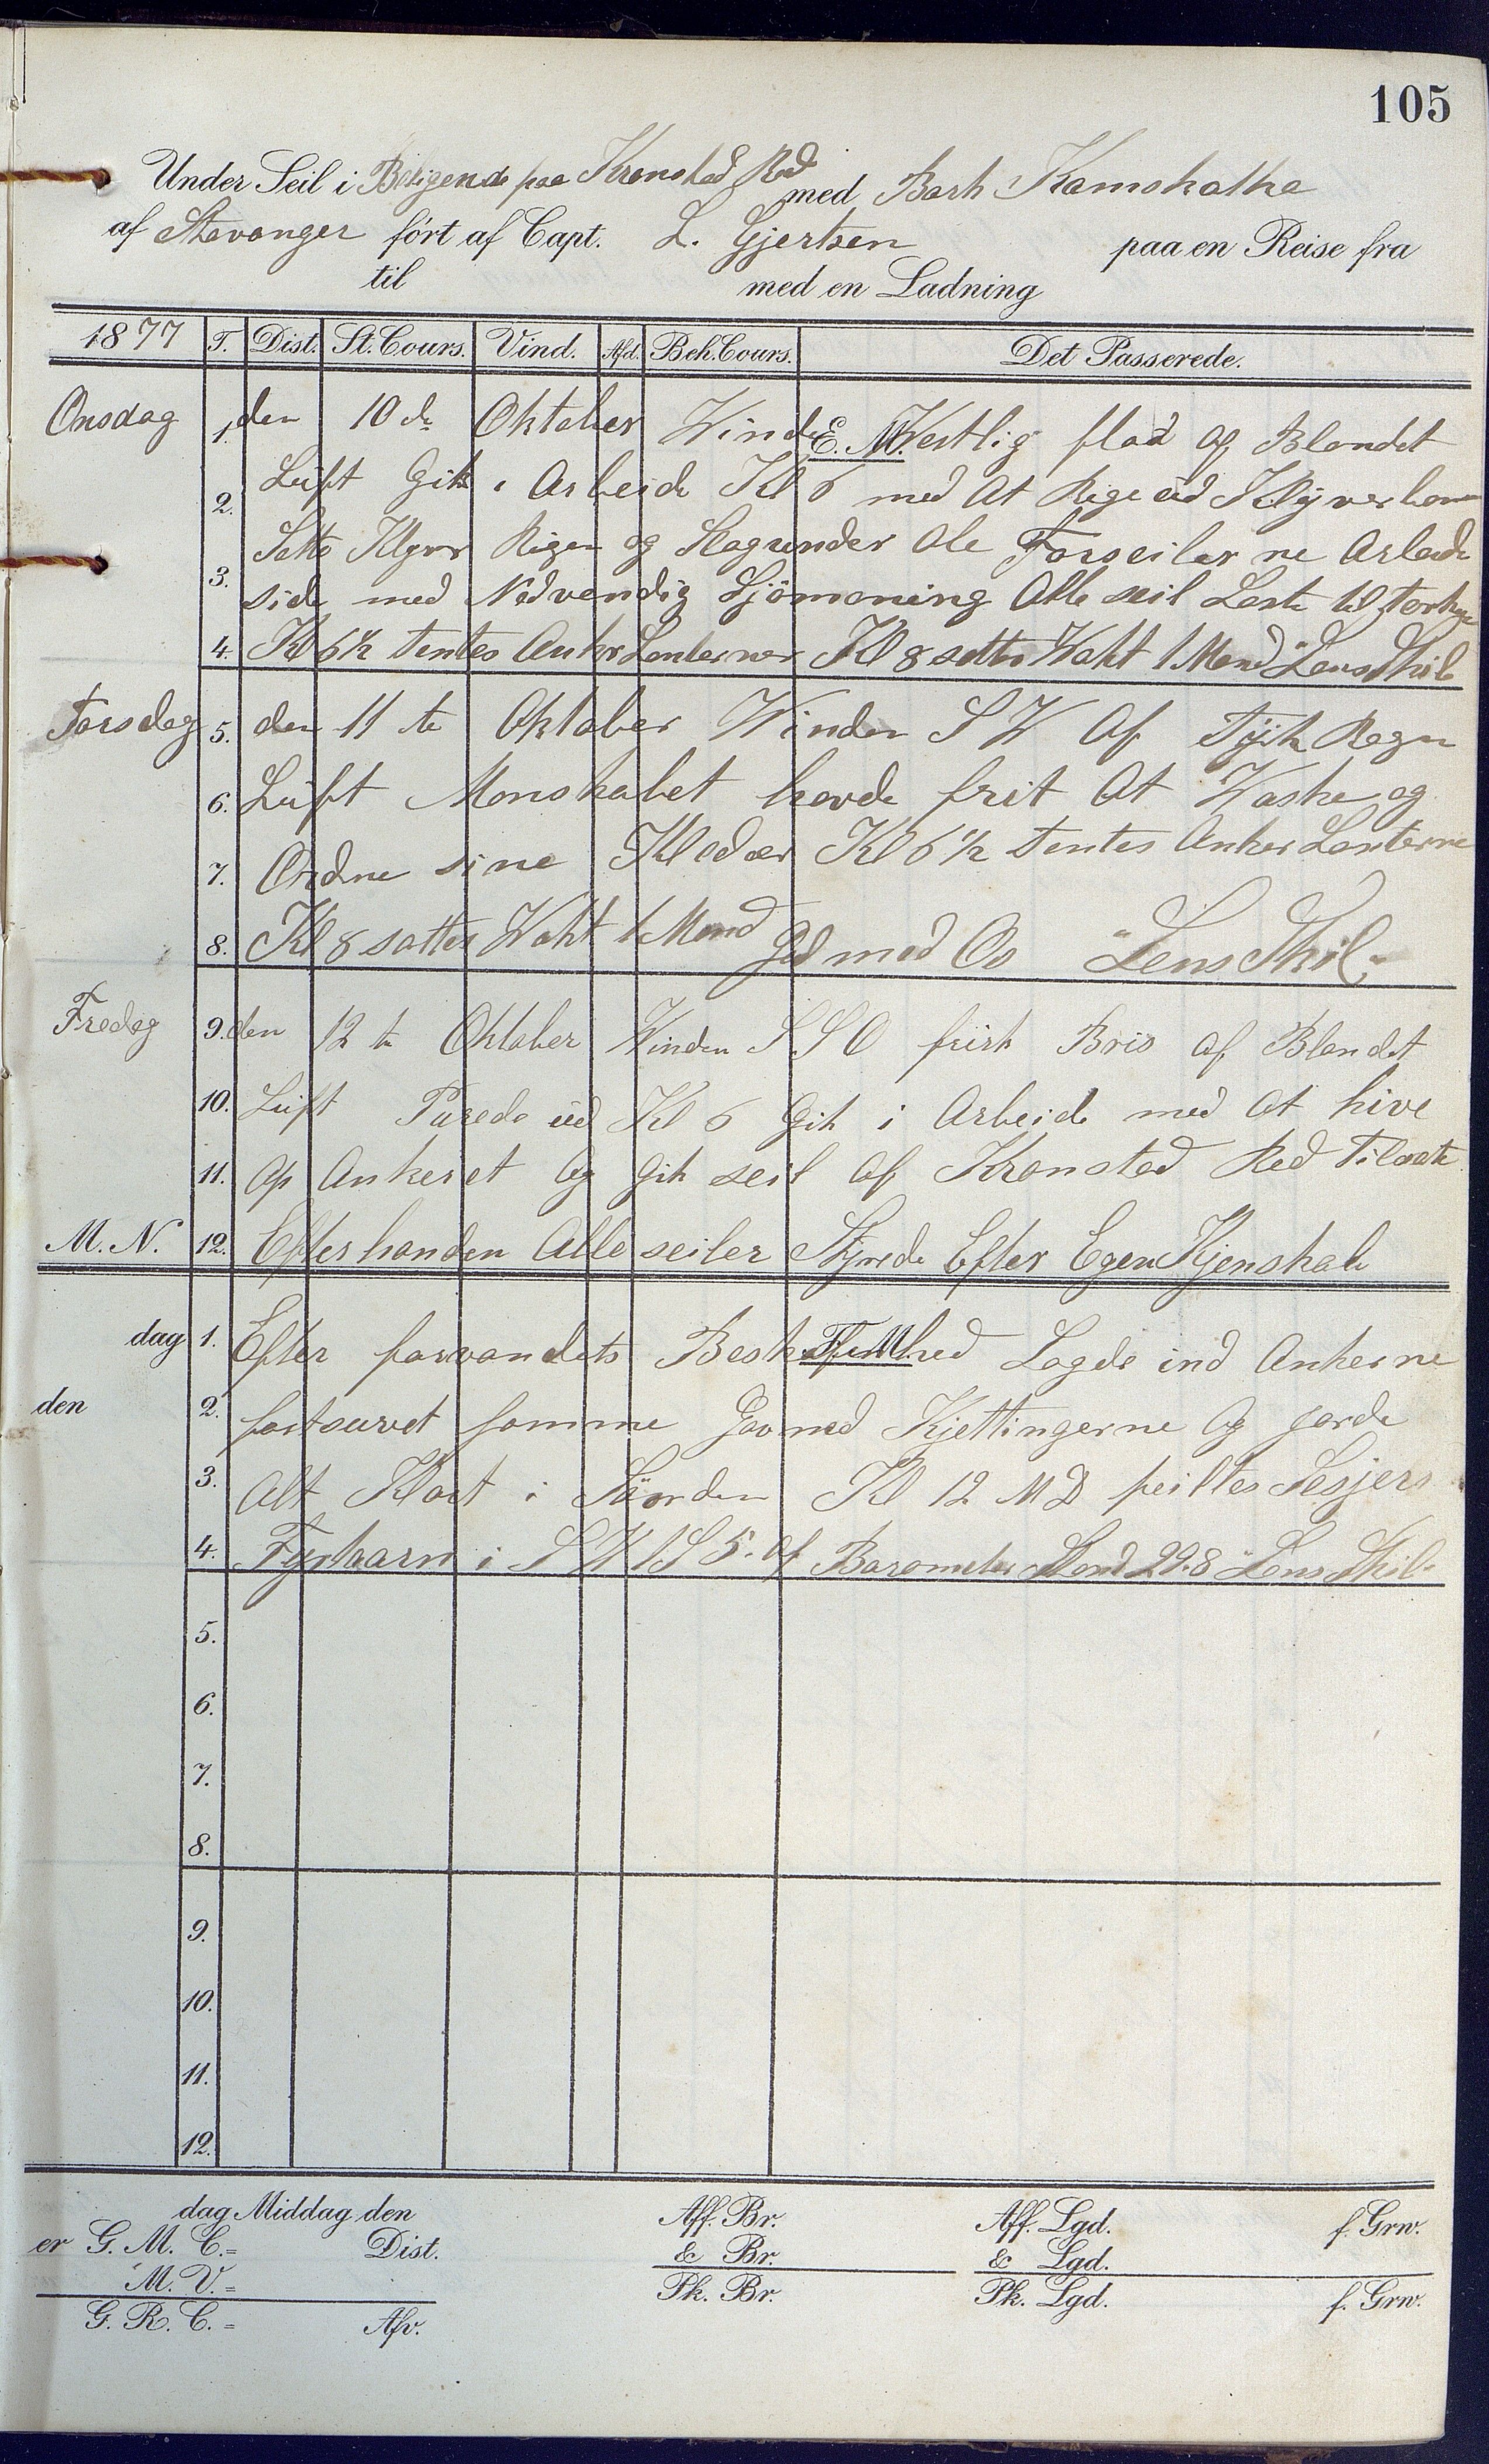 105
Under Seil i Beligende paa Kronstad Red med Bark Kamskatka
af Stavanger ført af Capt. L. Gjertsen paa en Reise fra
til med en Ladning
1877 T. Dist. St. Cours. Vind. Afd. Beh. Cours. Det Passerede.
Onsdag 1. den 10 de Oktober Winden E. M. Westlig flad og Blandet
2. Luft Gik i Arbeide Kl 6 med At Rige ud Klyverbom
3. Satte Klyver Rigen og Slog under Ale Forseilerne Arbeide
side med Nødvendig Sjömoning Alle seil Løste til Torking
4. Kl 6½ tentes Anker Lanterner Kl 8 sattes Wakt 1 Mand Lens Skib
Torsdag 5. den 11 te Oktober Winden S W Af Tÿk Regn
6. Luft Manskabet havde frit At Waske og
7. Ordne sine Klæder Kl 6½ tentes Anker Lanterne
8. Kl 8 sattes Wakt 1 Mand Gud med Os Lens Skib
Fredag 9. den 12 te Oktober Winden S S O frisk Bris af Blandet
10. Luft Purede ud Kl 6 Gik i Arbeide med At hive
11. Op Ankeret Og Gik seil af Kronstad Red Tilsatte
M. N. 12. Efterhanden Alle seiler Styrede Efter Egen Kjenskab
dag 1. Efter farvandets Beskaffenhed F. M. Lagde ind Ankerne
den 2. fastsurret samme Gav ned Kjettingerne Og gorde
3. Alt Klart i Sönden Kl 12 MD peiltes Sesjers
4. Fyrtaarn i S W ½ S 5. Af Barometer Stand 29.8 Lens Skib
5.
6.
7.
8.
9.
10.
11.
12.
dag Middag den Aff. Br. Aff. Lgd. f. Grw.
er G. M. C. = Dist. & Br. & Lgd.
M. V. = Pk. Br. Pk. Lgd. f. Grw.
G. R. C. = Afv.